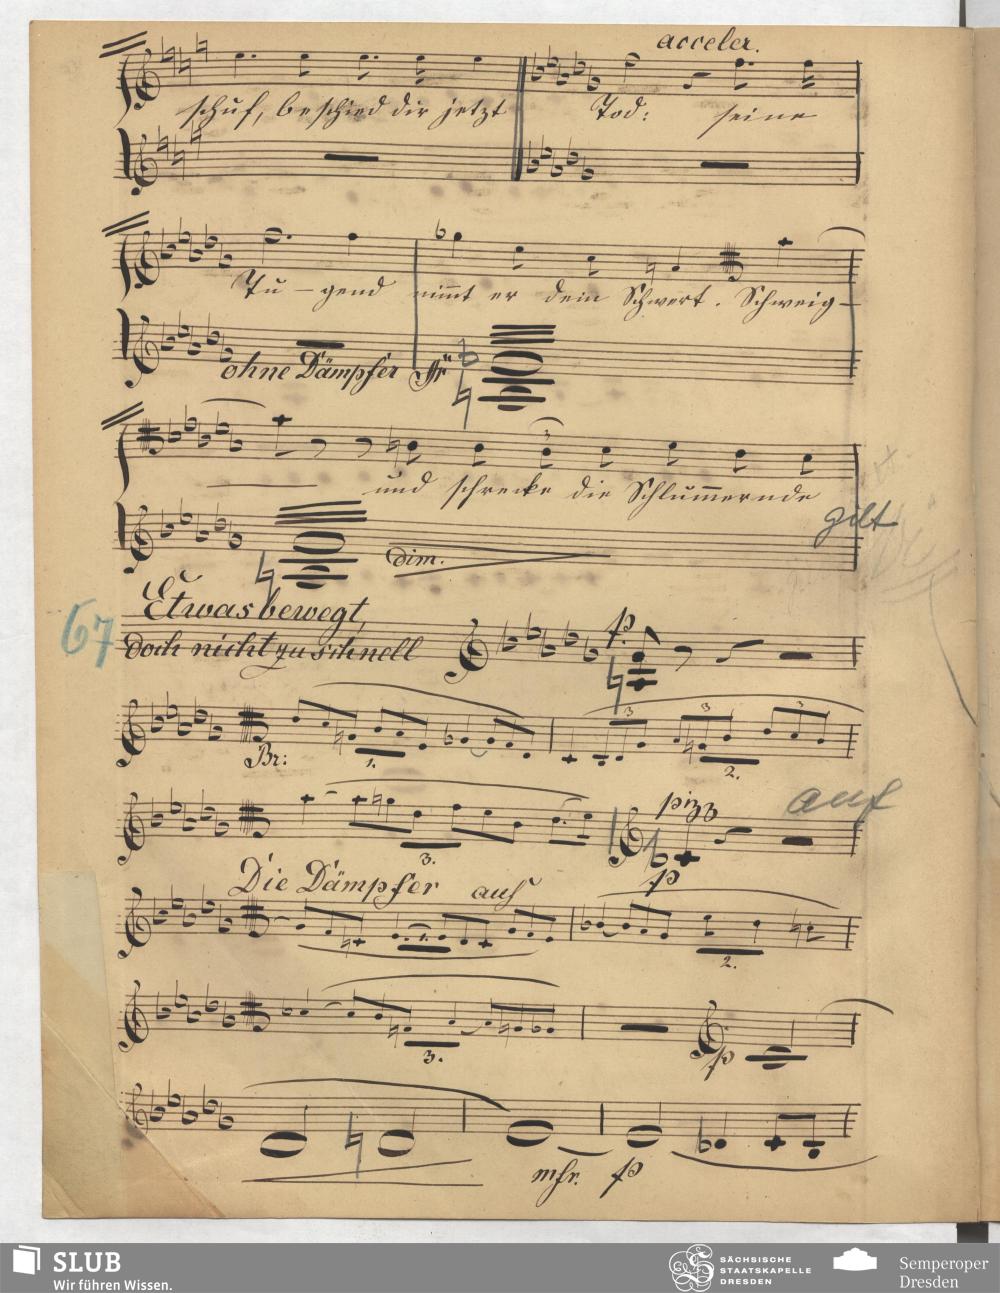 acceler.
schuf, beschied dir jetzt Tod: seine
Tu-gend nimt er dein Schwert. Schweig-
ohne Dämpfer
3
und schrecke die Schlum̄ernde
gilt
dim.
Etwas bewegt,
67 doch nicht zu schnell p.
3 3 3
Br: 1. 2.
auf
pizz
3.
p
Die Dämpfer auf
1. 2.
3.
p
mfr. p
SLUB
Wir führen Wissen.
SÄCHSISCHE
STAATSKAPELLE
DRESDEN
Semperoper
Dresden